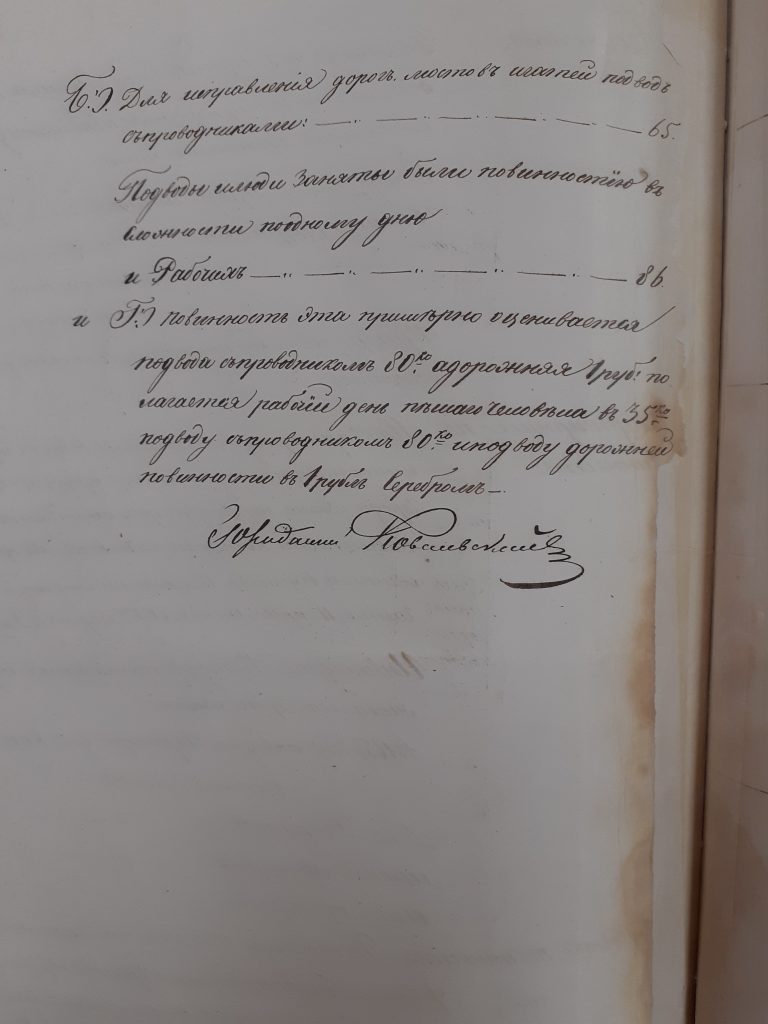 Б.) Для исправленія дорогъ. мостовъ игатей подводъ
съпроводниками: — „ — „ — „ — „ — 65.
Подводы илюди заняты были повинностію въ
сложности поодному дню
и Рабочихъ — „ — „ — „ — „ — 86.
и Г.) повинность эта примѣрно оценивается
подвода съпроводникомъ 80 ко. адорожняя 1 руб: по
лагается рабочій день пѣшаго человѣка въ 35 ко.
подводу съпроводникомъ 80 ко. иподводу дорожней
повинности въ 1 рубль Серебромъ —.
Ковалевскій